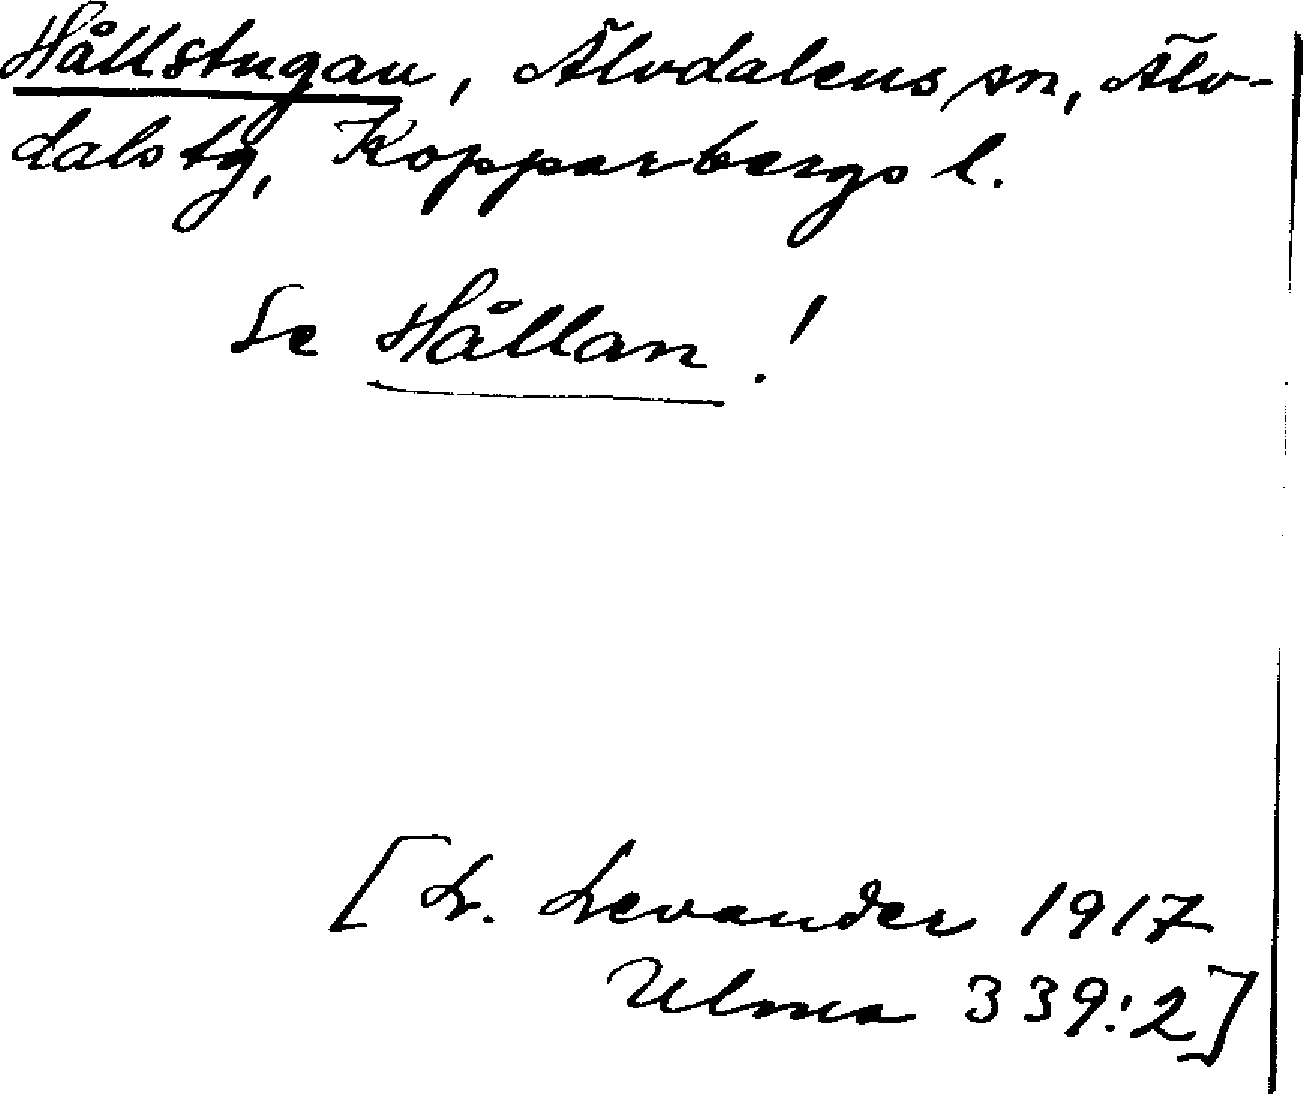 Hållstugan, Älvdalens sn, Älv-
dals tg, Kopparbergs l.
Se Hållan!
[L. Levander 1917
Ulma 339:2]